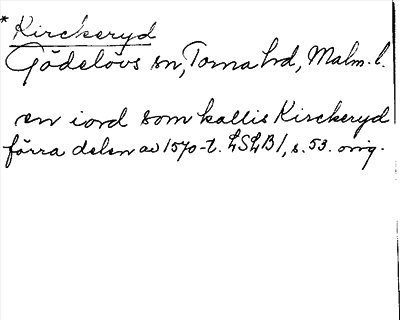 * Kirckeryd
Gödelövs sn, Torna hd, Malm. l.
en iord som kallis Kirckeryd
förra delen av 1570-t. LSLB 1, s. 53. orig.